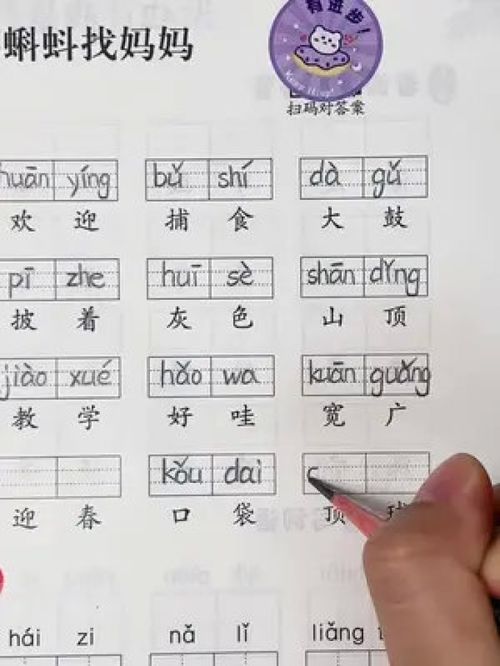 有进步！
蝌蚪找妈妈
Keep
扫码对答案
huān yíng bǔ shí dà gǔ
欢迎 捕食 大鼓
pī zhe huī sè shān dǐng
披着 灰色 山顶
jiào xué hǎo wa kuān guǎng
教学 好哇 宽广
kǒu dai
迎春 口袋 顶球
hái zi nǎ lǐ liǎng